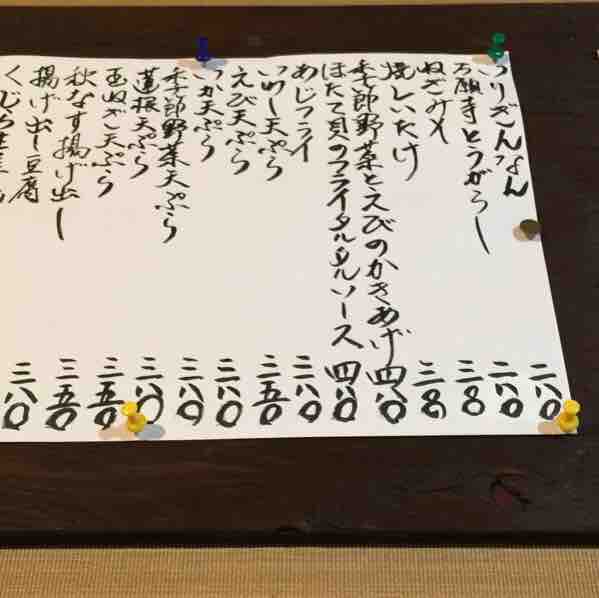 いりぎんなん 二八〇
万願寺とうがらし 二八〇
ねぎみそ 三八〇
焼しいたけ 三八〇
季節野菜とえびのかきあげ 四八〇
ほたて貝のフライタルタルソース 四八〇
あじフライ 三八〇
いわし天ぷら 三五〇
えび天ぷら
いか天ぷら
季節野菜天ぷら
蓮根天ぷら
玉ねぎ天ぷら 三五〇
秋なす揚げ出し 三五〇
揚げ出し豆腐
くじら